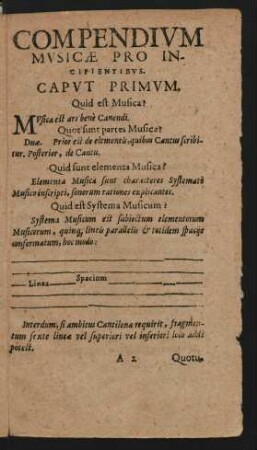 COMPENDIVM
MVSICÆ PRO IN-
CIPIENTIBVS.
CAPVT PRIMVM.
Quid est Musica?
MVsica est ars benè Canendi.
Quot sunt partes Musicæ?
Duæ. Prior est de elementis, quibus Cantus scribi-
tur. Posterior, de Cantu.
Quid sunt elementa Musica?
Elementa Musica sunt characteres Systemati
Musico inscripti, sonorum rationes explicantes.
Quid est Systema Musicum?
Systema Musicum est subiectum elementorum
Musicorum, quinq; lineis parallelis & totidem spacijs
conformatum, hoc modo:
Linea Spacium
Interdum, si ambitus Cantilenæ requirit, fragmen-
tum sextæ lineæ vel superiori vel inferiori loco addi
potest.
A 2 Quotu-